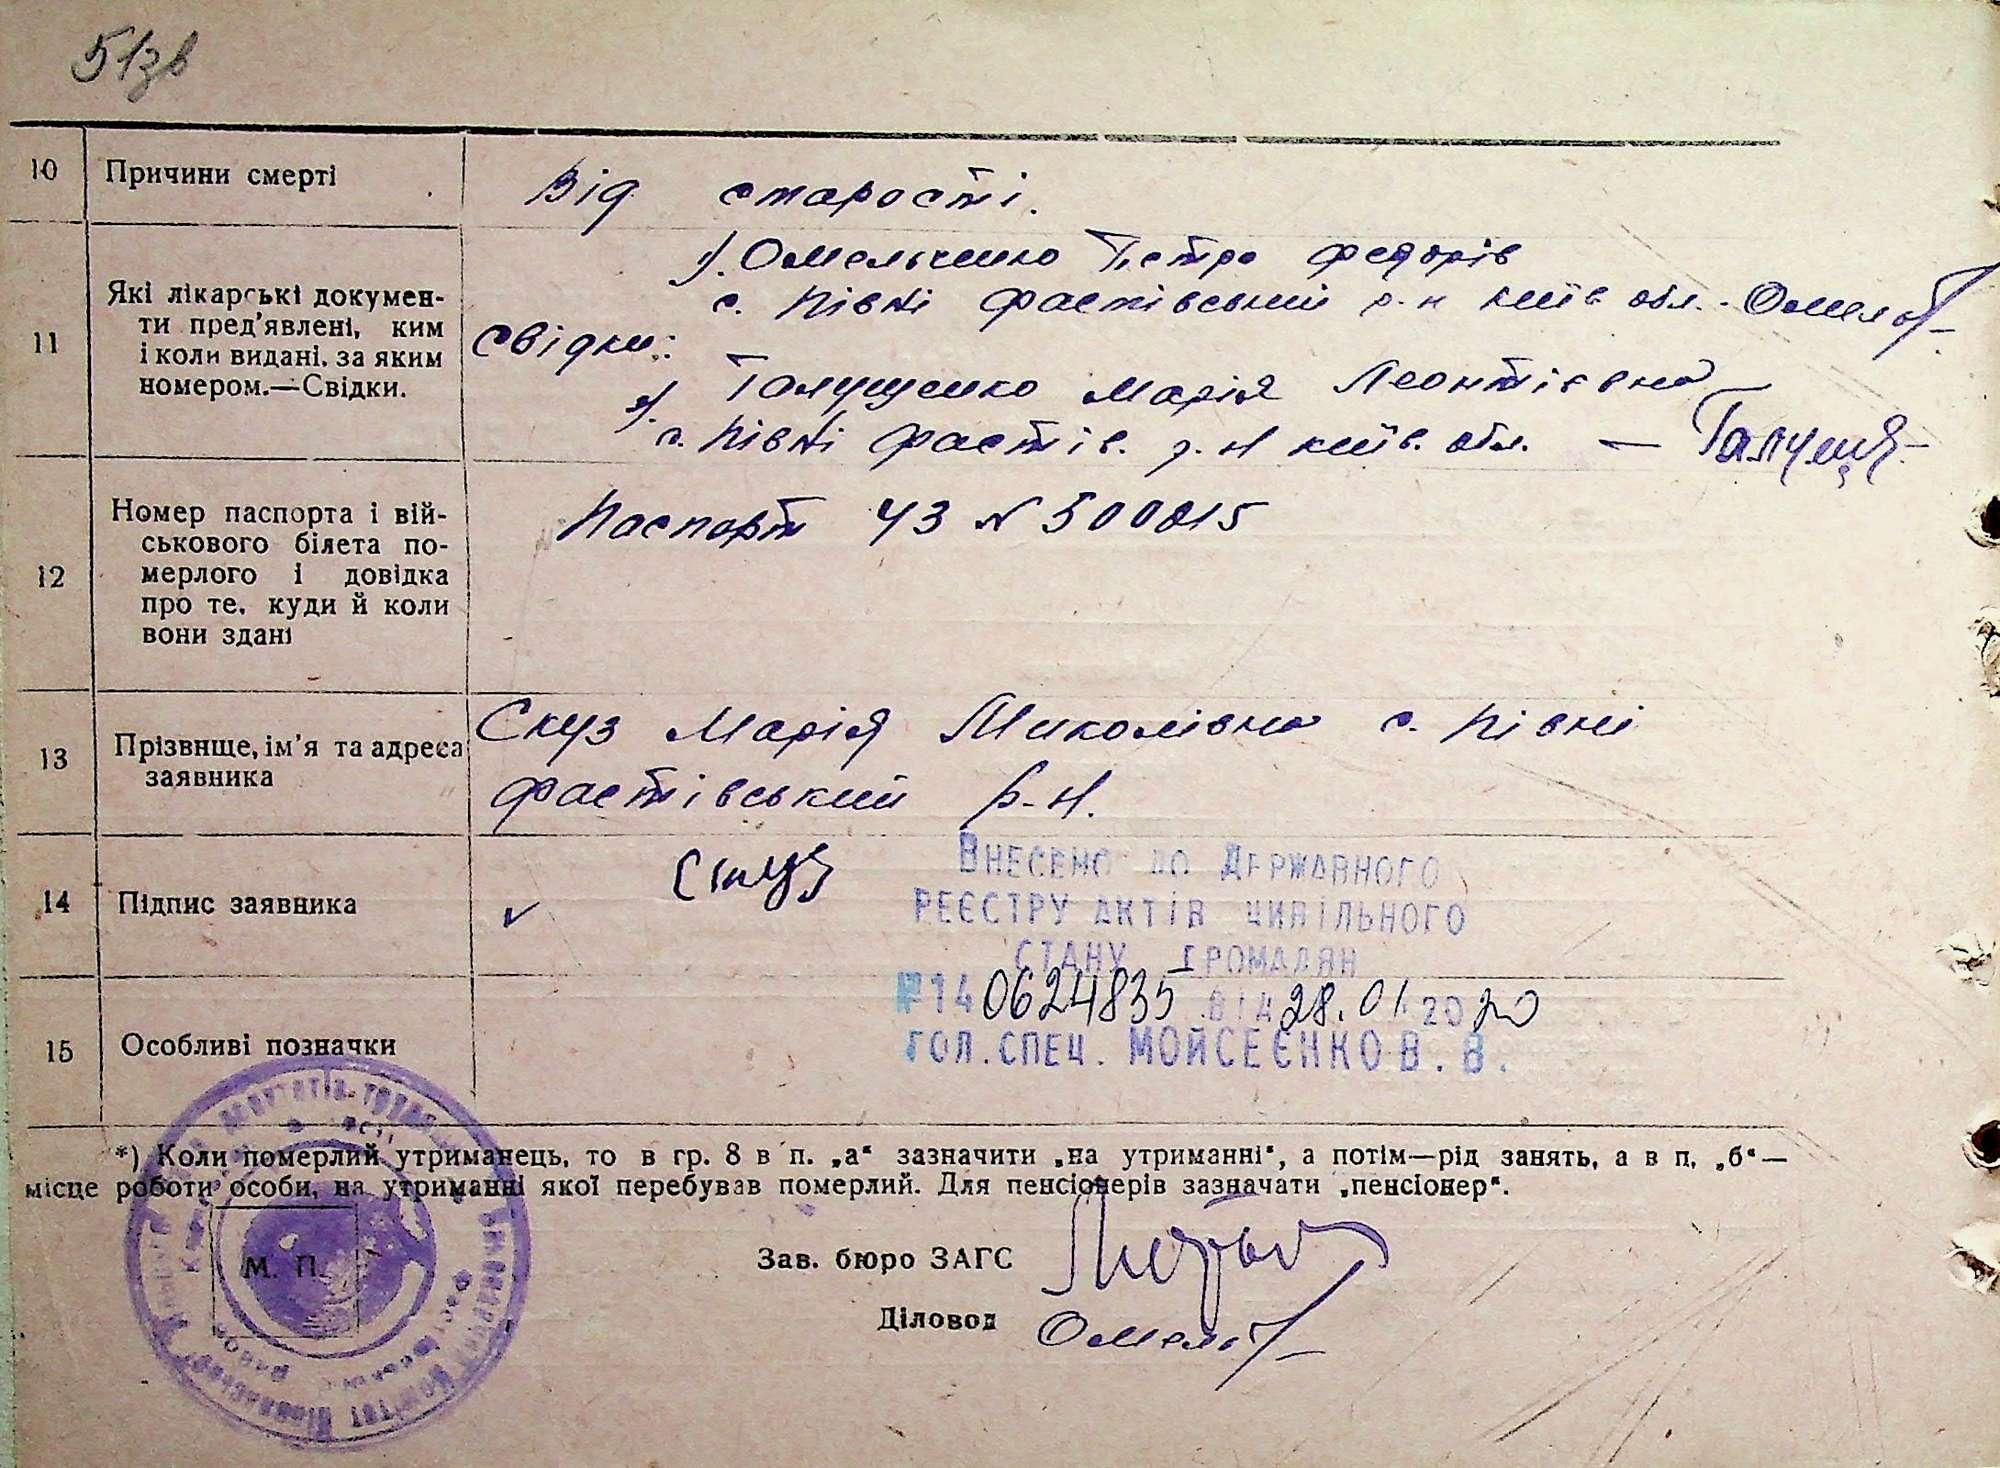 51зв
10 Причини смерті Від старості.
11 Які лікарські докумен-
ти пред'явлені, ким
і коли видані, за яким
номером.—Свідки.
Свідки:
1). Омельченко Петро Федорів
с. Півні Фастівський р-н Київ обл. - Омель
2). Галущенко Марія Леонтієвна
с. Півні Фастів. р-н Київ. обл. — Галуще
12 Номер паспорта і вій-
ськового білета по-
мерлого і довідка
про те, куди й коли
вони здані
Паспорт ЧЗ № 500815
13 Прізвище, ім'я та адреса
заявника
Скуз Марія Миколівна с. Півні
Фастівський р-н.
14 Підпис заявника
Скуз
ВНЕСЕНО ДО ДЕРЖАВНОГО
РЕЄСТРУ АКТІВ ЦИВІЛЬНОГО
СТАНУ ГРОМАДЯН
№14 0624835 ВІД 28.01.2020
ГОЛ.СПЕЦ. МОЙСЕЄНКО В.В.
15 Особливі позначки
*) Коли померлий утриманець, то в гр. 8 в п. „а“ зазначити „на утриманні“, а потім—рід занять, а в п. „б“—
місце роботи особи, на утриманні якої перебував померлий. Для пенсіонерів зазначати „пенсіонер“.
М. П.
Зав. бюро ЗАГС
Діловод Омель